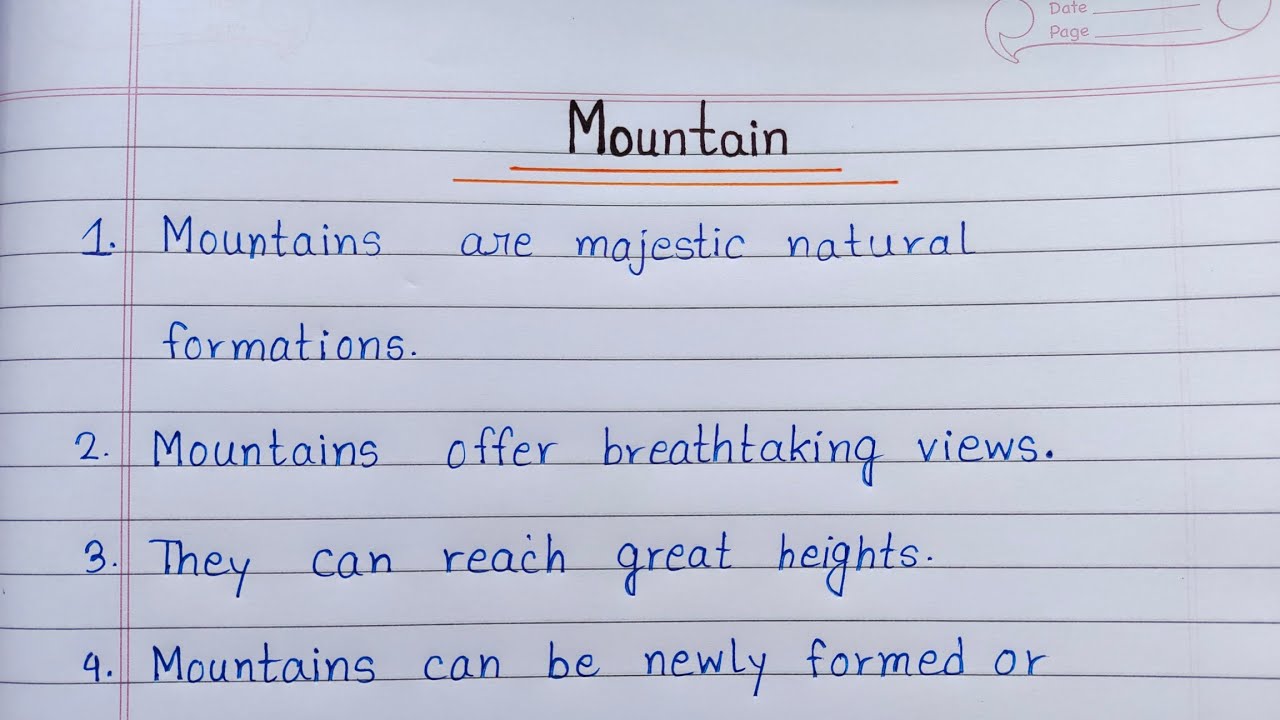 Date
Page
Mountain
1. Mountains are majestic natural
formations.
2. Mountains offer breathtaking views.
3. They can reach great heights.
4. Mountains can be newly formed or